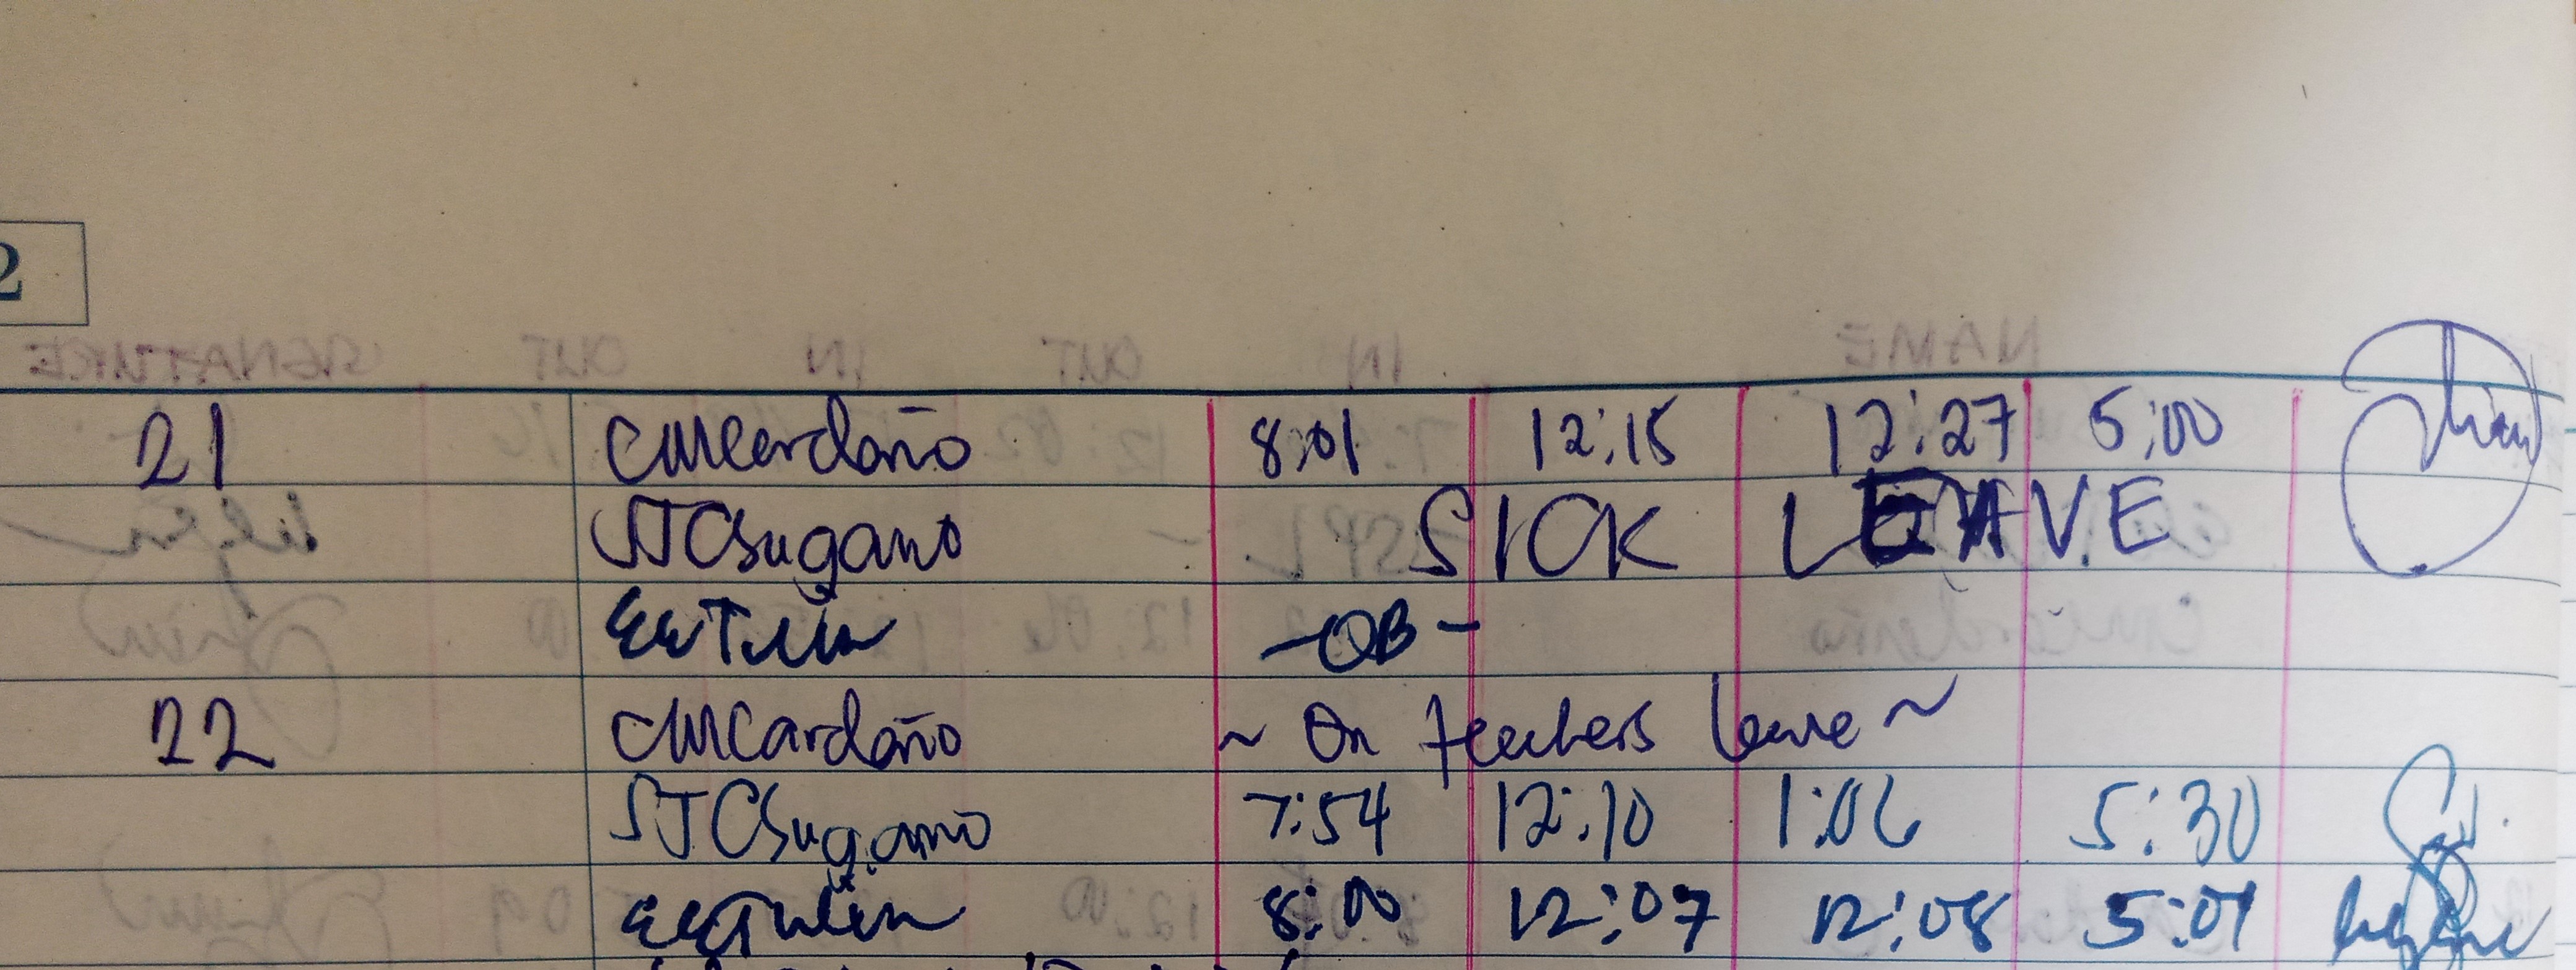 2
21 CMCardaño 8:01 12:15 12:27 5:00
STCSugano SICK LEAVE
-OB-
22 CMCardaño ~ On teachers leave ~
STCSugano 7:54 12:10 1:06 5:30
8:00 12:07 12:08 5:01